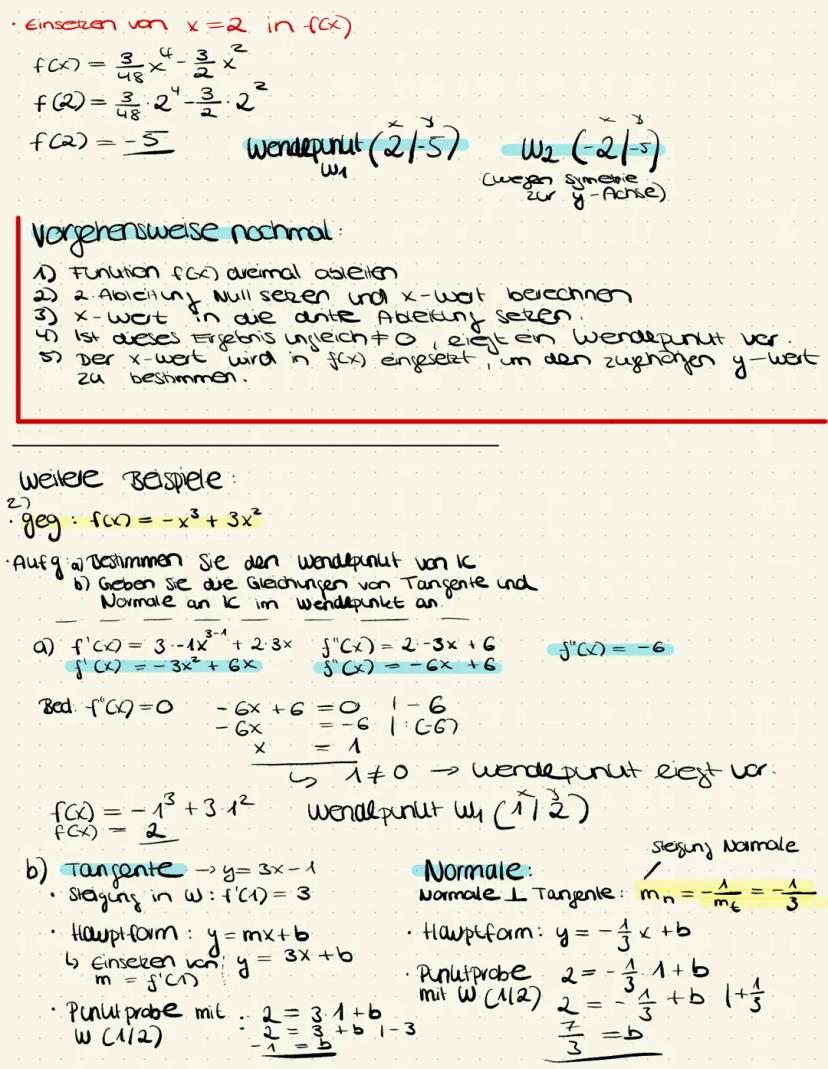 · Einsetzen von x = 2 in f(x)
f(x) = 3/48 x⁴ - 3/2 x²
f(2) = 3/48 · 2⁴ - 3/2 · 2²
f(2) = -5
x y
Wendepunkt (2|-5)
W1
x y
W2 (-2|-5)
(wegen Symmetrie
zur y-Achse)
Vorgehensweise nochmal:
1) Funktion f(x) dreimal ableiten
2) 2. Ableitung Null setzen und x-Wert berechnen
3) x-Wert in die dritte Ableitung setzen.
4) Ist dieses Ergebnis ungleich ≠ 0, liegt ein Wendepunkt vor.
5) Der x-Wert wird in f(x) eingesetzt, um den zughörigen y-Wert
zu bestimmen.
Weitere Beispiele:
2)
· geg: f(x) = -x³ + 3x²
· Aufg: a) Bestimmen Sie den Wendepunkt von K
b) Geben Sie die Gleichungen von Tangente und
Normale an K im Wendepunkt an.
a) f'(x) = 3·-1x³⁻¹ + 2·3x f''(x) = 2·-3x + 6 f'''(x) = -6
f'(x) = -3x² + 6x f''(x) = -6x + 6
Bed. f''(x) = 0 -6x + 6 = 0 | -6
-6x = -6 | : (-6)
x = 1
↳ 1 ≠ 0 → Wendepunkt liegt vor.
f(x) = -1³ + 3·1² Wendepunkt W1 (1|2)
x y
f(x) = 2
b) Tangente → y = 3x - 1
· Steigung in W: f'(1) = 3
· Hauptform: y = mx + b
↳ Einsetzen von: y = 3x + b
m = f'(1)
· Punktprobe mit : 2 = 3·1 + b
W (1|2) : 2 = 3 + b | -3
-1 = b
Steigung Normale
Normale:
Normale ⊥ Tangente: mn = -1/mt = -1/3
· Hauptform: y = -1/3 x + b
· Punktprobe 2 = -1/3 · 1 + b
mit W (1|2) 2 = -1/3 + b | +1/3
7/3 = b